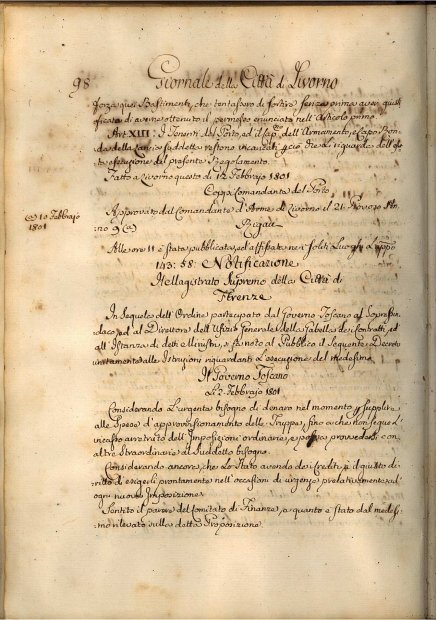 98
Giornale della Città di Livorno
forza quei Bastimenti, che tentassero di sortire senza prima aver giusti
ficato di averne ottenuto il permesso enunciato nell'Articolo primo.
Art. XIII: I Tenenti del Porto, ed il Cap. dell'Armamento, e Capo Ron
da della Lancia suddetta restono incaricati p ciò che li riguarda dell'
esecuzione del presente Regolamento.
Fatto a Livorno questo dì 12 Febbrajo 1801
Coppi Comandante del Porto
(a) 10 Febbrajo
1801
Approvato dal Comandante d'Armi di Livorno il 21 Piovoso An
no 9 (a)
Rigau
Alle ore 11 è stata pubblicata, ed affissata nei soliti Luoghi
143: 58: Notificazione
Il Magistrato Supremo della Città di
Firenze
In Sequela dell'Ordine partecipato dal Governo Toscano al Soprassin
daco, ed al Direttore dell'Ufizio Generale della Tabella dei Contratti, ed
all'Istanza di detti Ministri, fa noto al Pubblico il Seguente Decreto
unitamente alle Istruzioni riguardanti l'esecuzione del medesimo.
Il Governo Toscano
Li 2 Febbrajo 1801
Considerando l'urgente bisogno di denaro nel momento p supplire
alle Spese d'approvvisionamento delle Truppe, fino a che non segue l'
incasso arretrato dell'Imposizioni ordinarie, e possa provvedersi con
altre Straordinarie al Suddetto bisogno.
Considerando ancora, che lo Stato avendo dei Crediti, è il giusto di
ritto d'esigerli prontamente nell'occasioni di urgenze prelativamente ad
ogni nuova Imposizione.
Sentito il parere del Comitato di Finanze, e quanto è stato dal medesi
mo rilevato sulla detta Proposizione.